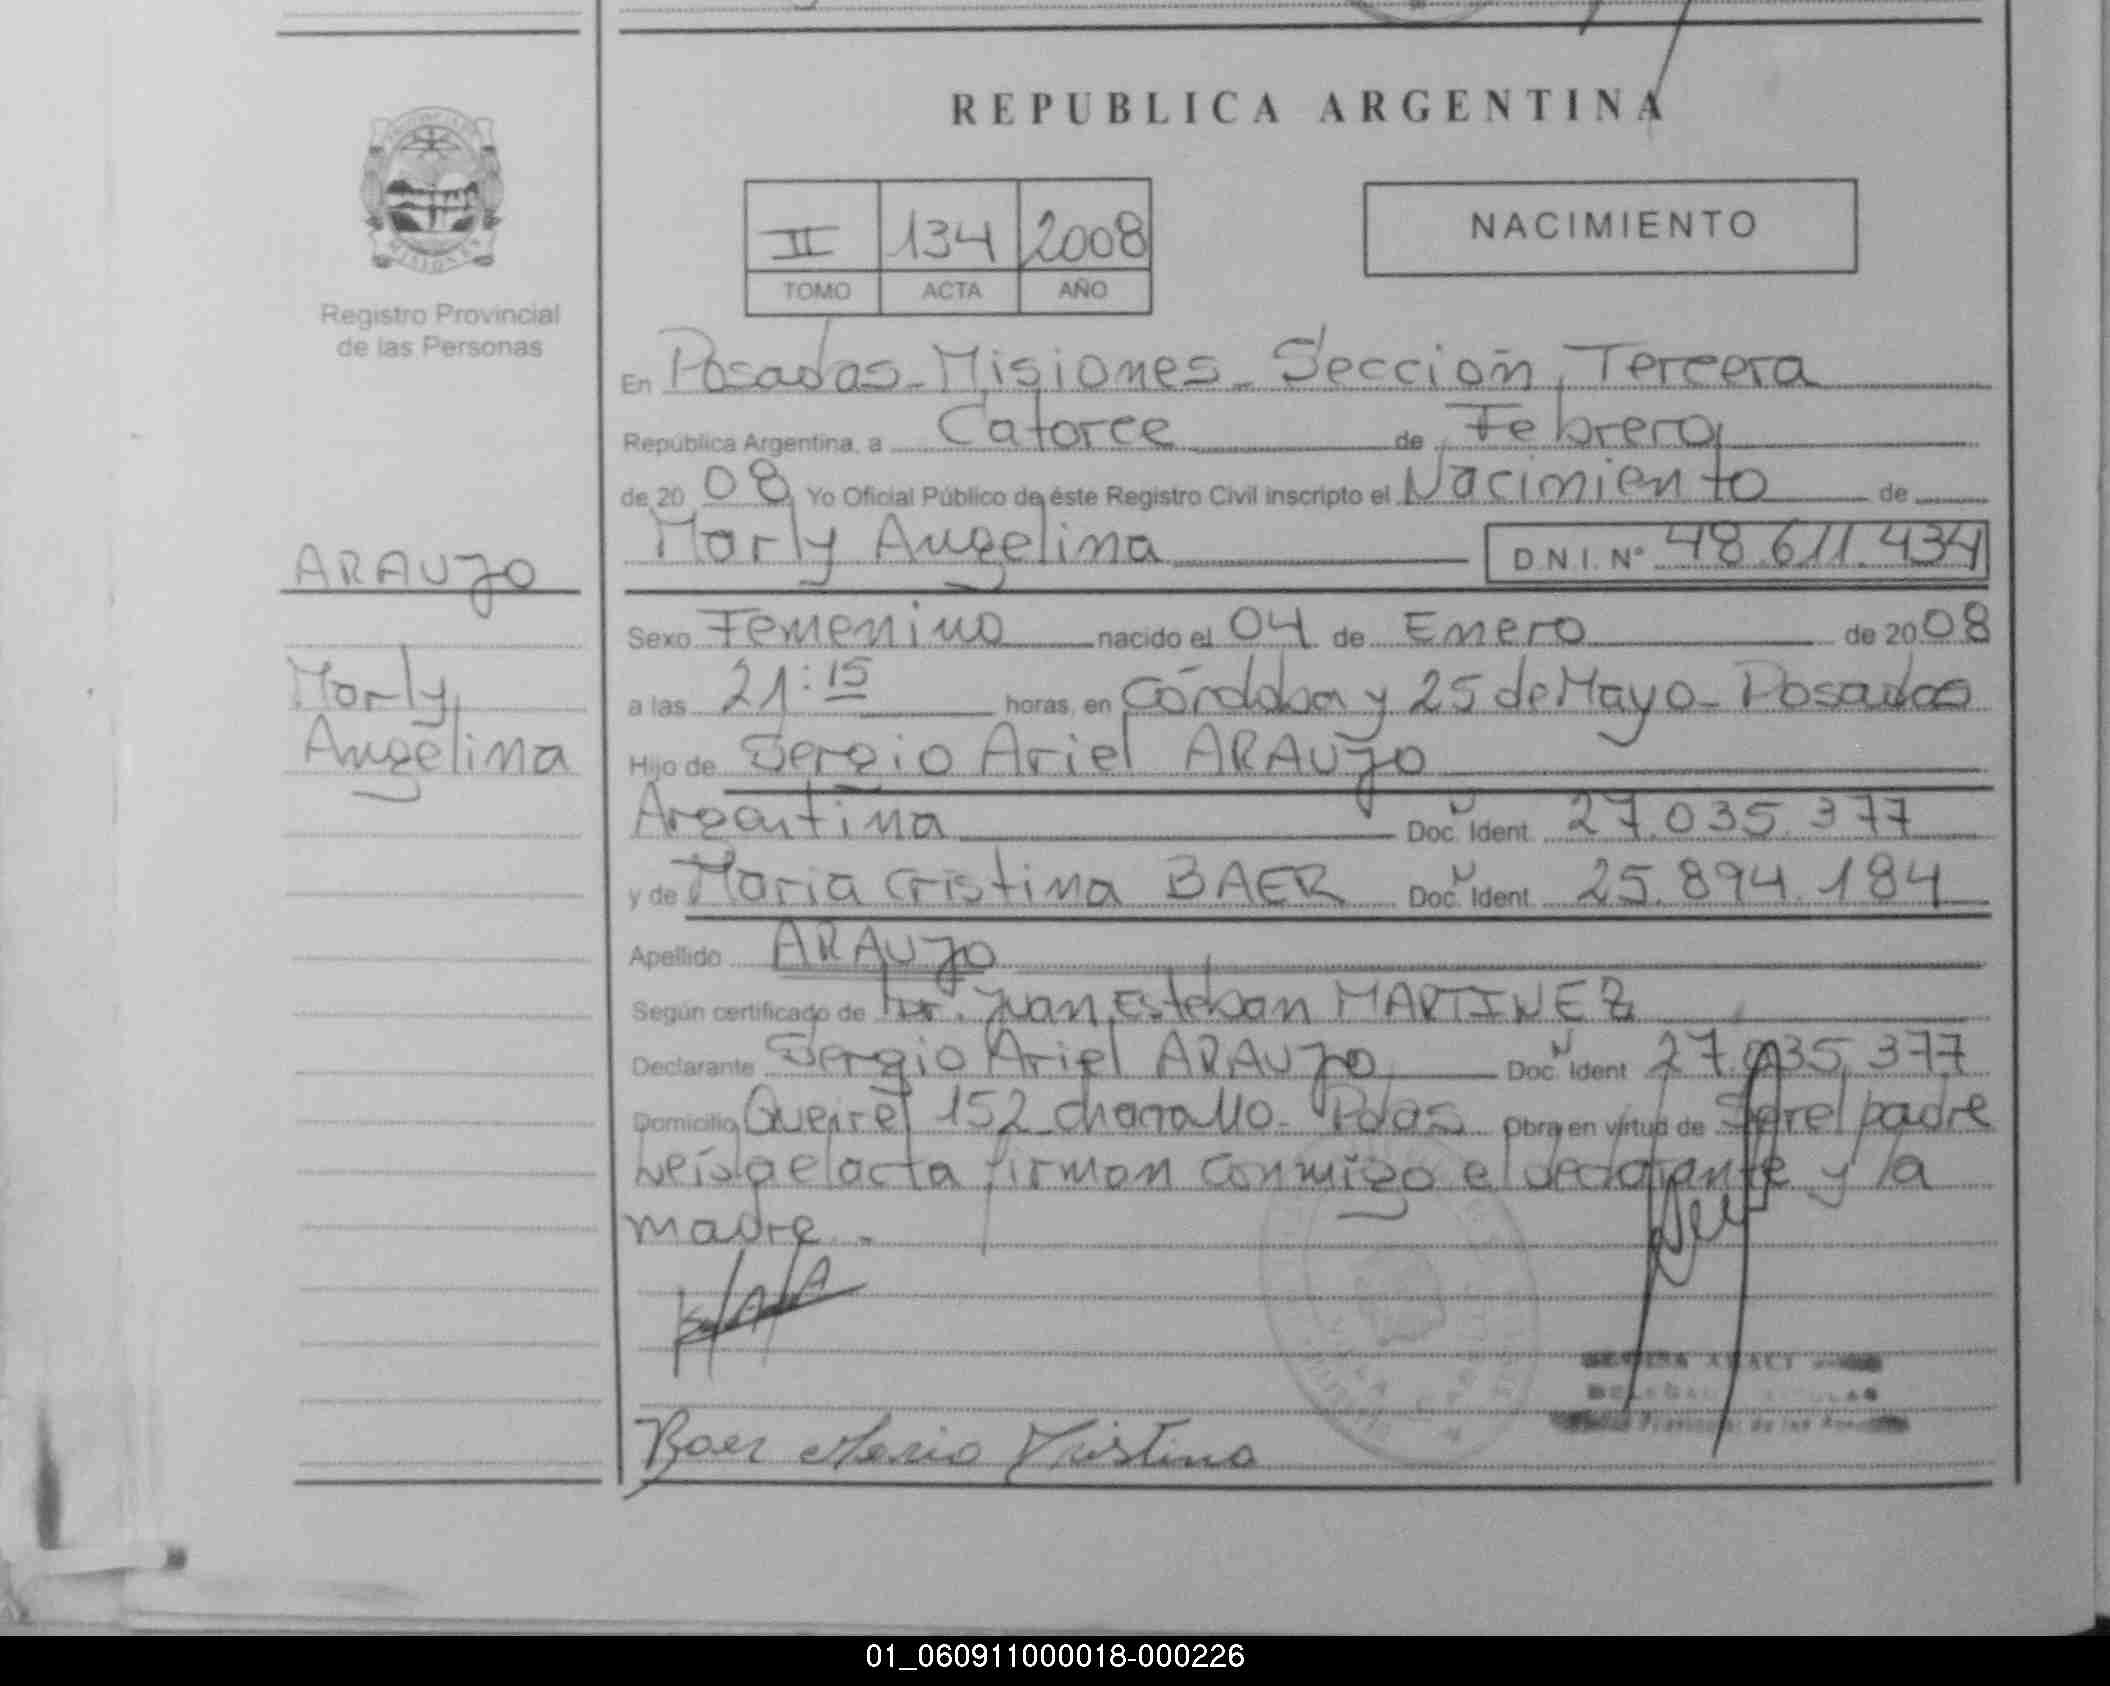 REPUBLICA ARGENTINA
II 134 2008
TOMO ACTA AÑO
NACIMIENTO
Registro Provincial
de las Personas
En Posadas - Misiones - Sección Tercera
República Argentina, a Catorce de Febrero
de 2008 Yo Oficial Público de éste Registro Civil inscripto el Nacimiento de
Marly Angelina D.N.I. Nº 48.611.434
ARAUJO
Marly
Angelina
Sexo Femenino nacido el 04 de Enero de 2008
a las 21:15 horas, en Córdoba y 25 de Mayo - Posadas
Hijo de Sergio Ariel ARAUJO
Argentina Doc. Ident. 27.035.377
y de Maria Cristina BAER Doc. Ident. 25.894.184
Apellido ARAUJO
Según certificado de Dr. Juan Esteban MARTINEZ
Declarante Sergio Ariel ARAUJO Doc. Ident. 27.035.377
Domicilio Queirel 152 - Pdas Obra en virtud de Ser el padre
Leída el acta firman conmigo el declarante y la
madre.-
Baer Maria Kristina
01_060911000018-000226